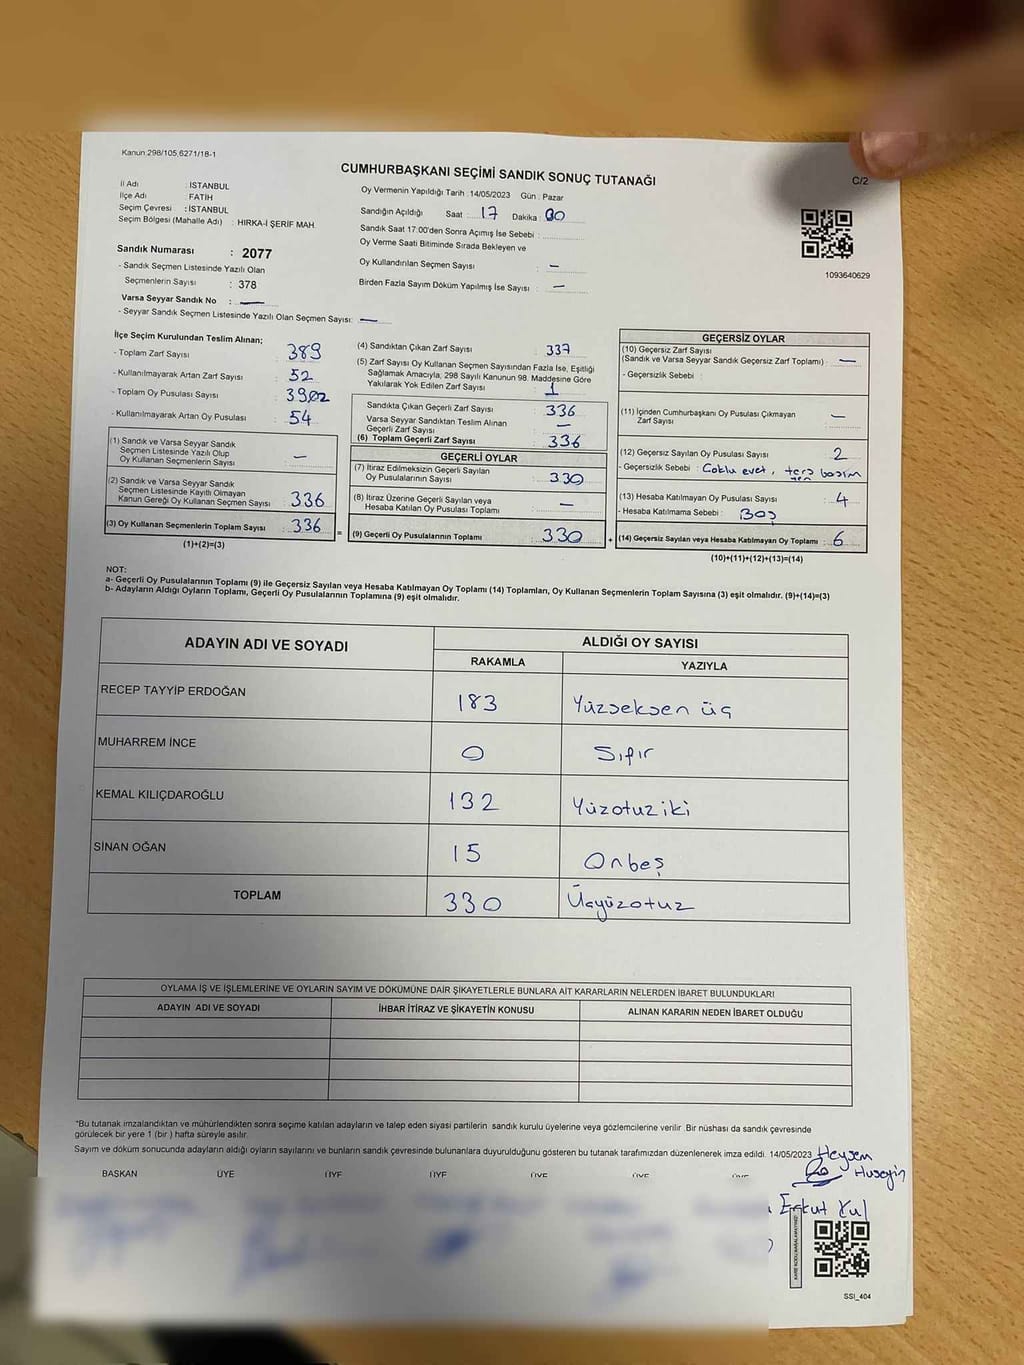 Kanun 298/105,6271/18-1
CUMHURBAŞKANI SEÇİMİ SANDIK SONUÇ TUTANAĞI
C/2
İl Adı : İSTANBUL
İlçe Adı : FATİH
Seçim Çevresi : İSTANBUL
Seçim Bölgesi (Mahalle Adı) : HIRKA-İ ŞERİF MAH
Sandık Numarası : 2077
- Sandık Seçmen Listesinde Yazılı Olan
Seçmenlerin Sayısı : 378
Varsa Seyyar Sandık No : —
- Seyyar Sandık Seçmen Listesinde Yazılı Olan Seçmen Sayısı: —
Oy Vermenin Yapıldığı Tarih :14/05/2023 Gün : Pazar
Sandığın Açıldığı Saat : 17 Dakika : 00
Sandık Saat 17:00'den Sonra Açımış İse Sebebi :
Oy Verme Saati Bitiminde Sırada Bekleyen ve
Oy Kullandırılan Seçmen Sayısı : —
Birden Fazla Sayım Döküm Yapılmış İse Sayısı : —
1093640629
İlçe Seçim Kurulundan Teslim Alınan;
- Toplam Zarf Sayısı : 389
- Kullanılmayarak Artan Zarf Sayısı : 52
- Toplam Oy Pusulası Sayısı :
- Kullanılmayarak Artan Oy Pusulası : 54
(1) Sandık ve Varsa Seyyar Sandık
Seçmen Listesinde Yazılı Olup
Oy Kullanan Seçmenlerin Sayısı : —
(2) Sandık ve Varsa Seyyar Sandık
Seçmen Listesinde Kayıtlı Olmayan
Kanun Gereği Oy Kullanan Seçmen Sayısı : 336
(3) Oy Kullanan Seçmenlerin Toplam Sayısı : 336
(1)+(2)=(3)
(4) Sandıktan Çıkan Zarf Sayısı : 337
(5) Zarf Sayısı Oy Kullanan Seçmen Sayısından Fazla İse, Eşitliği
Sağlamak Amacıyla, 298 Sayılı Kanunun 98. Maddesine Göre
Yakılarak Yok Edilen Zarf Sayısı : 1
Sandıkta Çıkan Geçerli Zarf Sayısı : 336
Varsa Seyyar Sandıktan Teslim Alınan
Geçerli Zarf Sayısı : —
(6) Toplam Geçerli Zarf Sayısı : 336
GEÇERLİ OYLAR
(7) İtiraz Edilmeksizin Geçerli Sayılan
Oy Pusulalarının Sayısı : 330
(8) İtiraz Üzerine Geçerli Sayılan veya
Hesaba Katılan Oy Pusulası Toplamı : —
= (9) Geçerli Oy Pusulalarının Toplamı : 330 +
GEÇERSİZ OYLAR
(10) Geçersiz Zarf Sayısı
(Sandık ve Varsa Seyyar Sandık Geçersiz Zarf Toplamı) : —
- Geçersizlik Sebebi :
(11) İçinden Cumhurbaşkanı Oy Pusulası Çıkmayan
Zarf Sayısı : —
(12) Geçersiz Sayılan Oy Pusulası Sayısı : 2
- Geçersizlik Sebebi : Çoklu evet, ters basım
(13) Hesaba Katılmayan Oy Pusulası Sayısı : 4
- Hesaba Katılmama Sebebi : Boş
(14) Geçersiz Sayılan veya Hesaba Katılmayan Oy Toplamı : 6
(10)+(11)+(12)+(13)=(14)
NOT:
a- Geçerli Oy Pusulalarının Toplamı (9) ile Geçersiz Sayılan veya Hesaba Katılmayan Oy Toplamı (14) Toplamları, Oy Kullanan Seçmenlerin Toplam Sayısına (3) eşit olmalıdır. (9)+(14)=(3)
b- Adayların Aldığı Oyların Toplamı, Geçerli Oy Pusulalarının Toplamına (9) eşit olmalıdır.
ADAYIN ADI VE SOYADI
ALDIĞI OY SAYISI
RAKAMLA YAZIYLA
RECEP TAYYİP ERDOĞAN 183 Yüzseksen üç
MUHARREM İNCE 0 Sıfır
KEMAL KILIÇDAROĞLU 132 Yüzotuziki
SİNAN OĞAN 15 Onbeş
TOPLAM 330 Üçyüzotuz
OYLAMA İŞ VE İŞLEMLERİNE VE OYLARIN SAYIM VE DÖKÜMÜNE DAİR ŞİKAYETLERLE BUNLARA AİT KARARLARIN NELERDEN İBARET BULUNDUKLARI
ADAYIN ADI VE SOYADI İHBAR İTİRAZ VE ŞİKAYETİN KONUSU ALINAN KARARIN NEDEN İBARET OLDUĞU
*Bu tutanak imzalandıktan ve mühürlendikten sonra seçime katılan adayların ve talep eden siyasi partilerin sandık kurulu üyelerine veya gözlemcilerine verilir .Bir nüshası da sandık çevresinde
görülecek bir yere 1 (bir ) hafta süreyle asılır.
Sayım ve döküm sonucunda adayların aldığı oyların sayılarını ve bunların sandık çevresinde bulunanlara duyurulduğunu gösteren bu tutanak tarafımızdan düzenlenerek imza edildi. 14/05/2023
BAŞKAN ÜYE ÜYE ÜYE ÜYE ÜYE
Huseyin
SSI_404